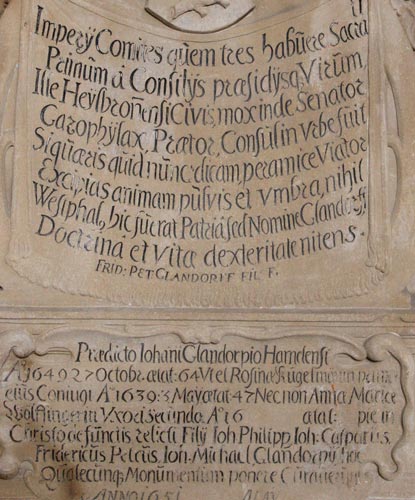 Imperÿ Comites quem tres habuere Sacri
Primum á Consilÿs præsidÿsq Virum
Iste Heylbronensi Civis mox inde Senator
Garophylax Prætor Consul in Urbe fuit
Si quæris quid nunc dicam peramice Viator
Excipias animam pulvis et umbra nihil
Westphal, hic fuerat Patria sed Nomine Glandorff
Doctrina et Vita dexteritate nitens.
FRID: PET. GLANDORFF FIL. F.
Prædicto Iohani Glandorpio Hamelensi
Aº 1649 27 Octobr. ætat: 64 Vt et Rosinæ Kugelmanin primæ
eius Coniugi Aº 1639. 3 May ætat 47 Nec non Annæ Mariæ
Uxori secundo Aº 16 ætat: pie in
Christo defunctis relicti Filÿ Ioh Philipp, Ioh. Casparus,
Fridericus Petrus, Ioh. Michael Glandorpÿ hoc
Qualecunq Monumentum ponere Curaverunt
ANNO 1651